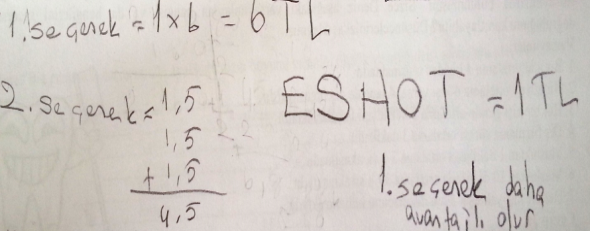 1. seçenek = 1x6 = 6 TL
2. seçenek = 1,5
1,5
+ 1,5
4,5
ESHOT = 1 TL
1. seçenek daha
avantajlı olur